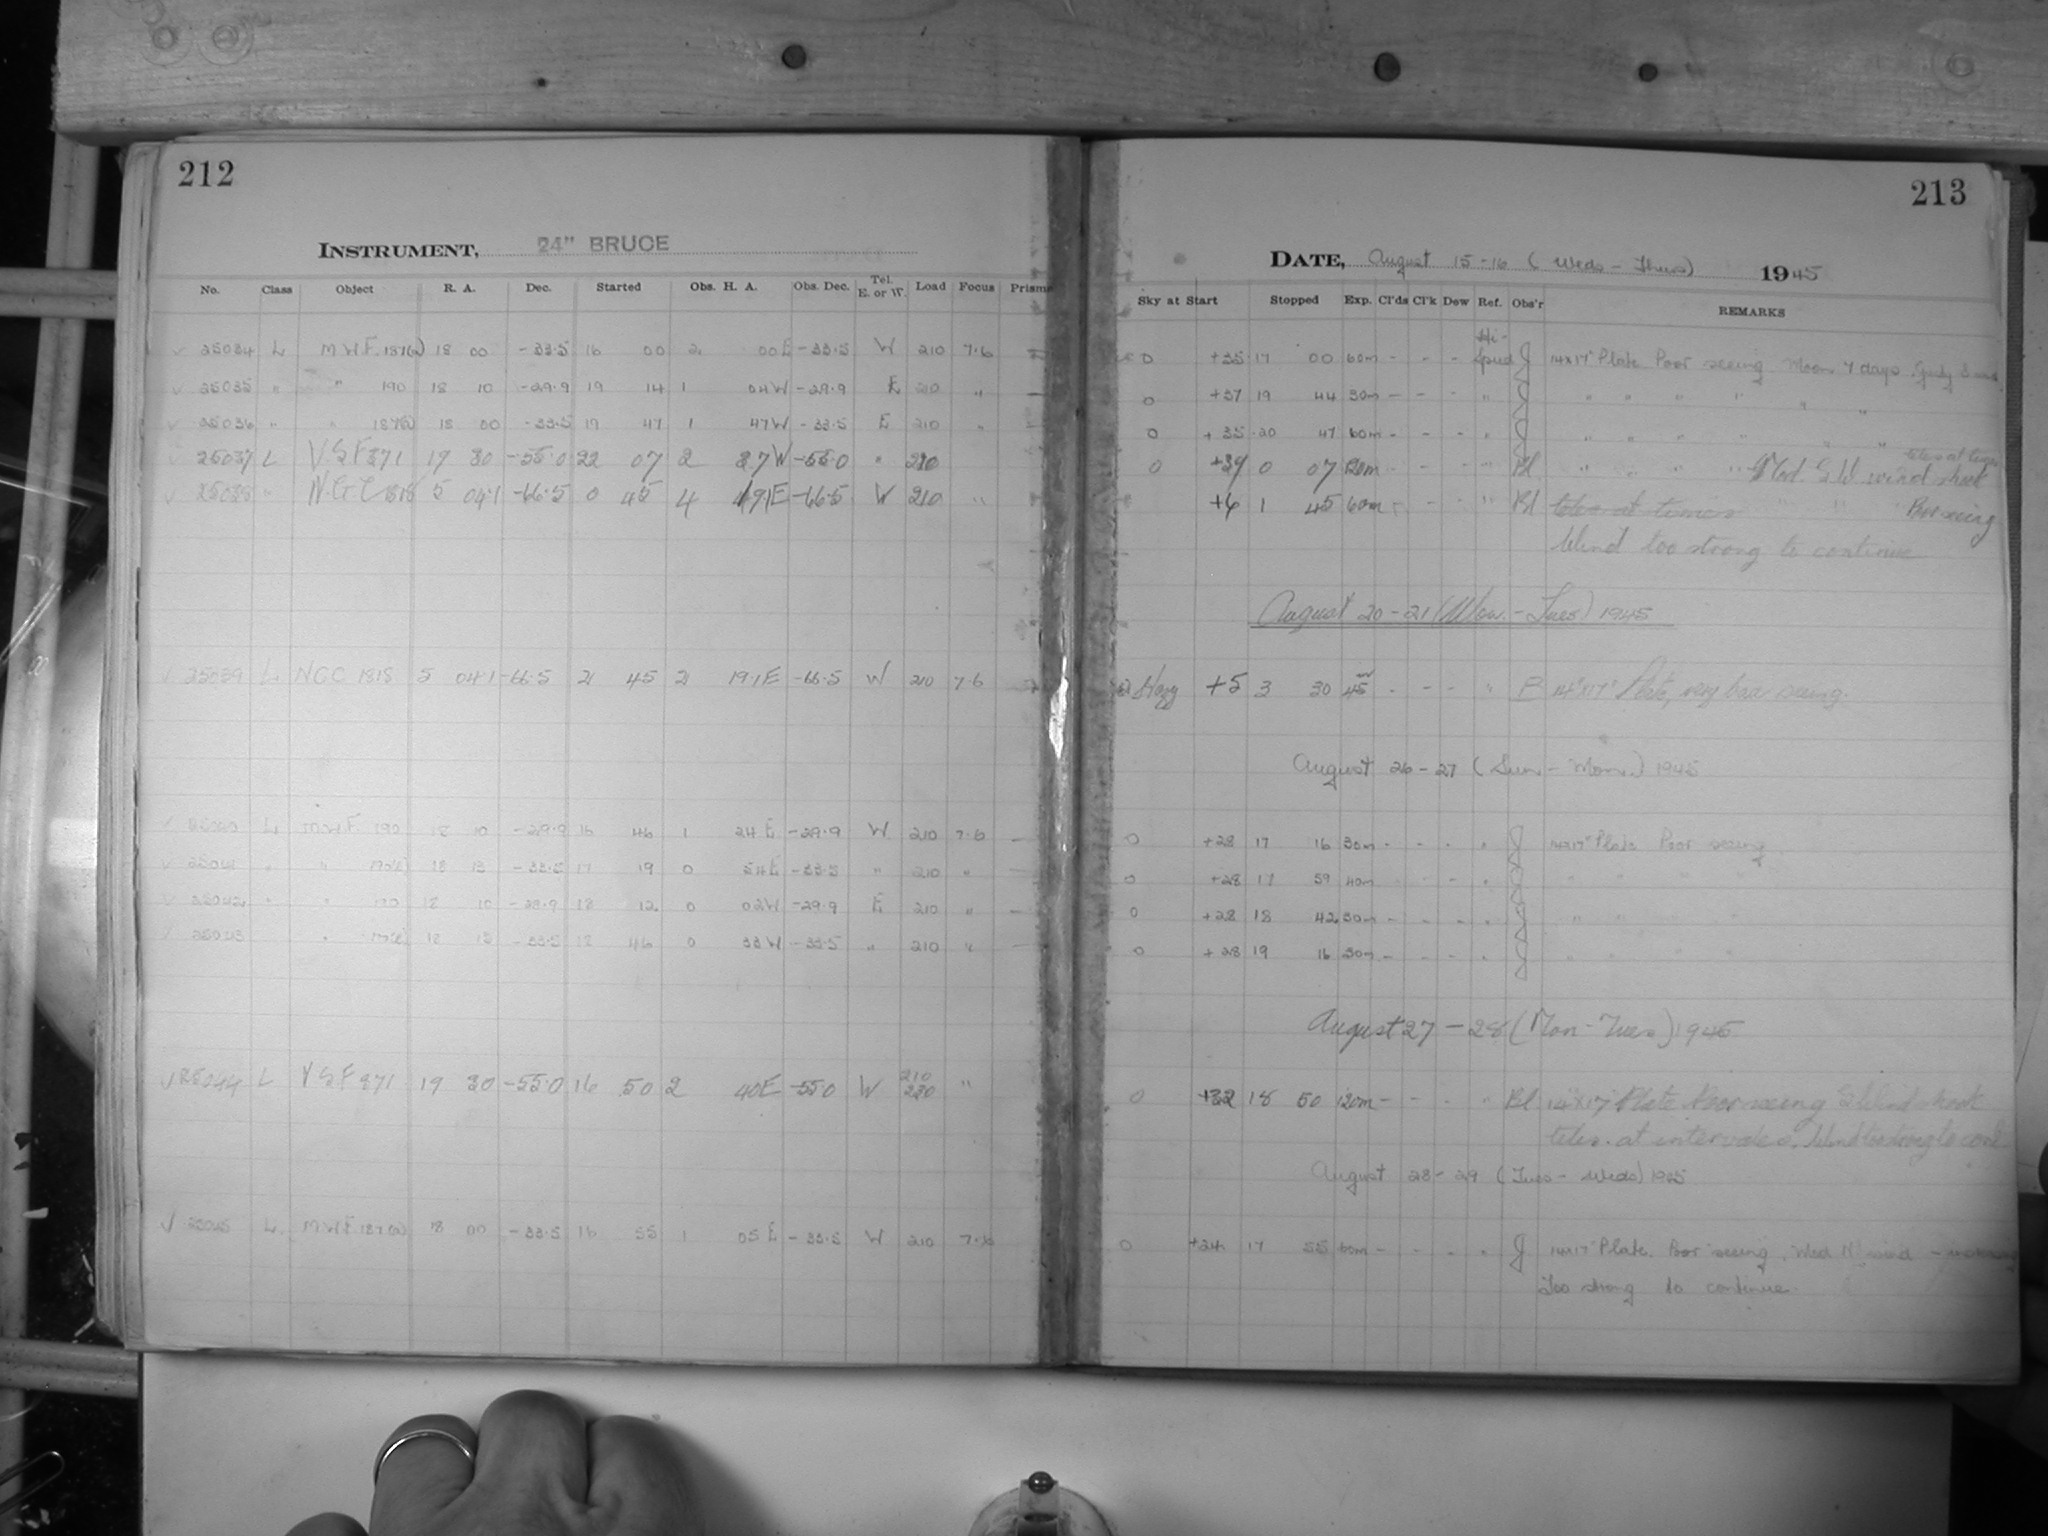 212
INSTRUMENT, 24" BRUCE
No. Class Object R. A. Dec. Started Obs. H. A. Obs. Dec. Tel. E. or W. Load Focus Prisms
25034 L MWF 187(2) 18 00 -33.5 16 00 2 00E -33.5 W 210 7.6
25035 " " 190 18 10 -29.9 19 14 1 04W -29.9 E 210 "
25036 " " 18 00 -33.5 19 47 1 47W -33.5 E 210 "
25037 L VSF 871 19 30 -55.0 22 07 2 37W -55.0 " 210
25038 " N.G.C 1818 5 04.1 -66.5 0 45 4 19.1E -66.5 W 210 "
25039 L NGC 1818 5 04.1 -66.5 21 45 2 19.1E -66.5 W 210 7.6
25040 L MWF 190 18 10 -29.9 16 46 1 24E -29.9 W 210 7.6
25041 " " 18 13 -33.5 17 19 0 54E -33.5 " 210 "
25042 " " 190 18 10 -29.9 18 12 0 02W -29.9 E 210 "
25043 " 18 13 -33.5 18 46 0 33W -33.5 " 210 "
25044 L VSF 871 19 30 -55.0 16 50 2 40E -55.0 W 210 220 "
25045 L. MWF 187(2) 18 00 -33.5 16 55 1 05E -33.5 W 210 7.6
213
DATE, August 15-16 (Weds - Thurs) 1945
Sky at Start Stopped Exp. Cl'ds Cl'k Dew Ref. Obs'r REMARKS
0 +35 17 00 60m - - - Hi-Speed J 14x17" Plate Poor seeing Moon 7 days
0 +37 19 44 30m - - - " J " " " " " "
0 +35 20 47 60m - - - " J " " " " " "
0 +39 0 07 120m - - - " Bl " " " " Mod. S.W. wind shook teles at times
+6 1 45 60m - - " Bl teles at times " " Poor seeing
Wind too strong to continue
August 20-21 (Mon. - Tues) 1945
Hazy +5 3 30 45m - - - " B 14"x17" Plate, very bad seeing.
August 26-27 (Sun - Mon.) 1945
0 +28 17 16 30m - - - " J 14x17" Plate Poor seeing
0 +28 17 59 40m - - - " J " " " "
0 +28 18 42 30m - - - " J " " " "
0 +28 19 16 30m - - - " J " " " "
August 27-28 (Mon - Tues) 1945
0 +32 18 50 120m - - - " Bl 14"x17" Plate Poor seeing S Wind shook
teles. at intervals. Wind too strong to cont.
August 28-29 (Tues - Weds) 1945
0 +24 17 55 60m - - - " J 14x17" Plate. Poor seeing. Mod N wind -
Too strong to continue.